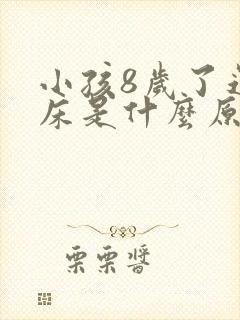 小孩8歲了
床是什麼原
栗栗醬